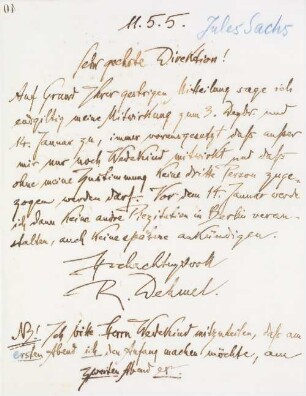 11. 5. 5.
Jules Sachs
Sehr geehrte Direktion!
Auf Grund Ihrer gestrigen Mitteilung sage ich
endgiltig meine Mitwirkung zum 3. und
14. Januar zu, immer vorausgesetzt daß außer
mir nur noch Wedekind mitwirkt und daß
ohne meine Zustimmung keine dritte Person zuge-
zogen werden darf. Vor dem 14. Januar werde
ich dann keine andre Rezitation in Berlin veran-
stalten, auch keine spätere ankündigen.
Hochachtungsvoll
R. Dehmel.
NB! Ich bitte Herrn Wedekind mitzuteilen, daß am
ersten Abend ich den Anfang machen möchte, am
zweiten Abend er.